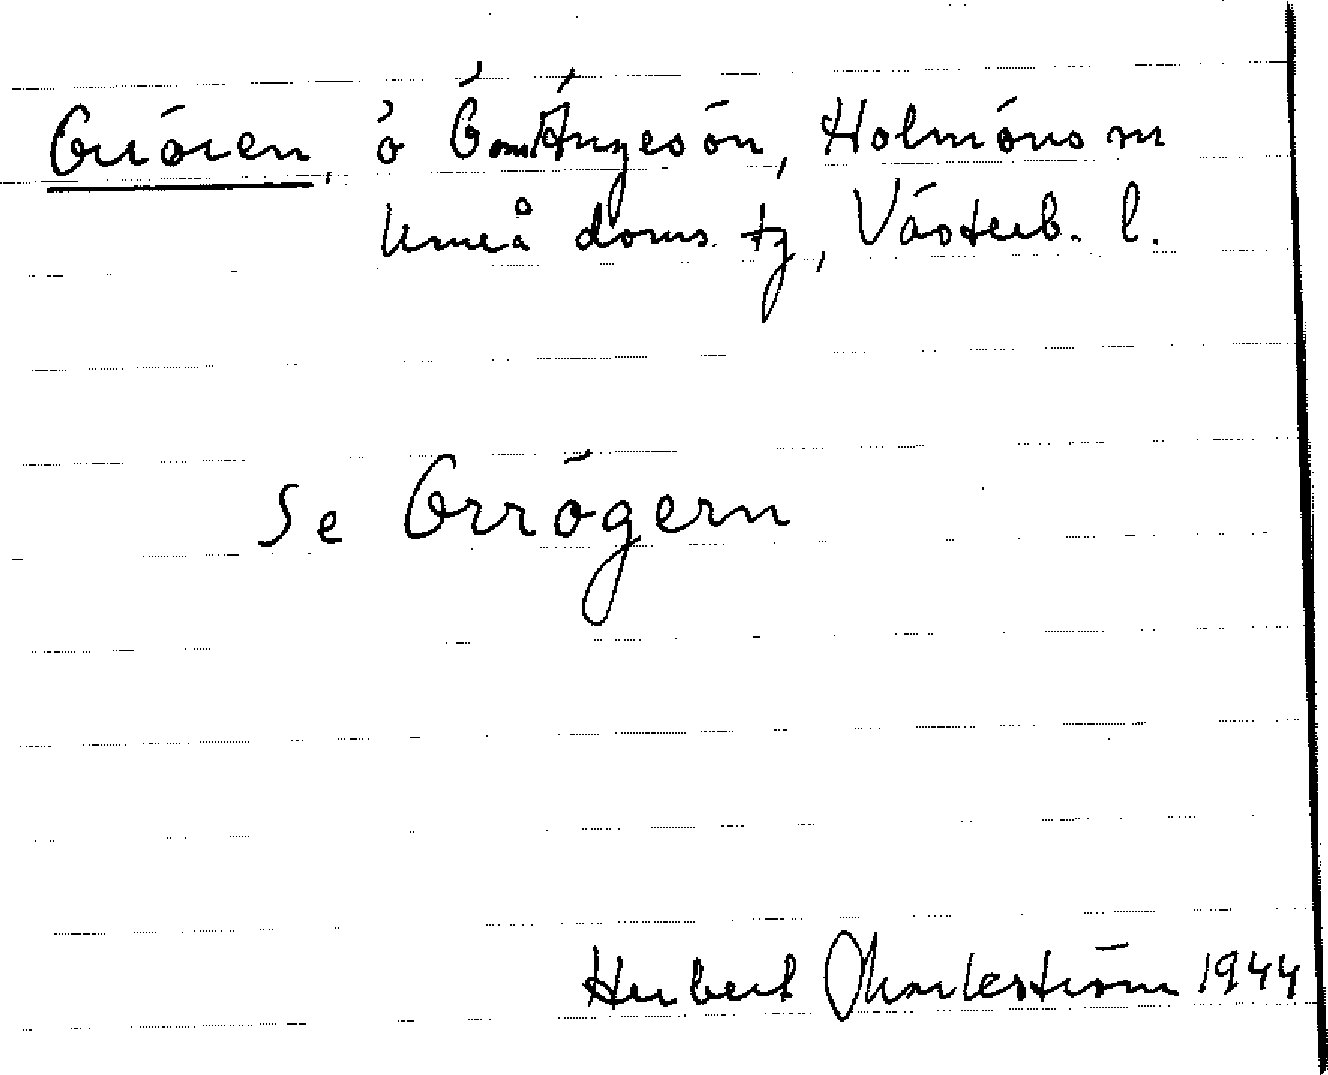 Orrören, ö Ö om Ängesön, Holmöns sn
Umeå doms. tg, Västerb. l.
Se Orrögern
Herbert Markström 1944